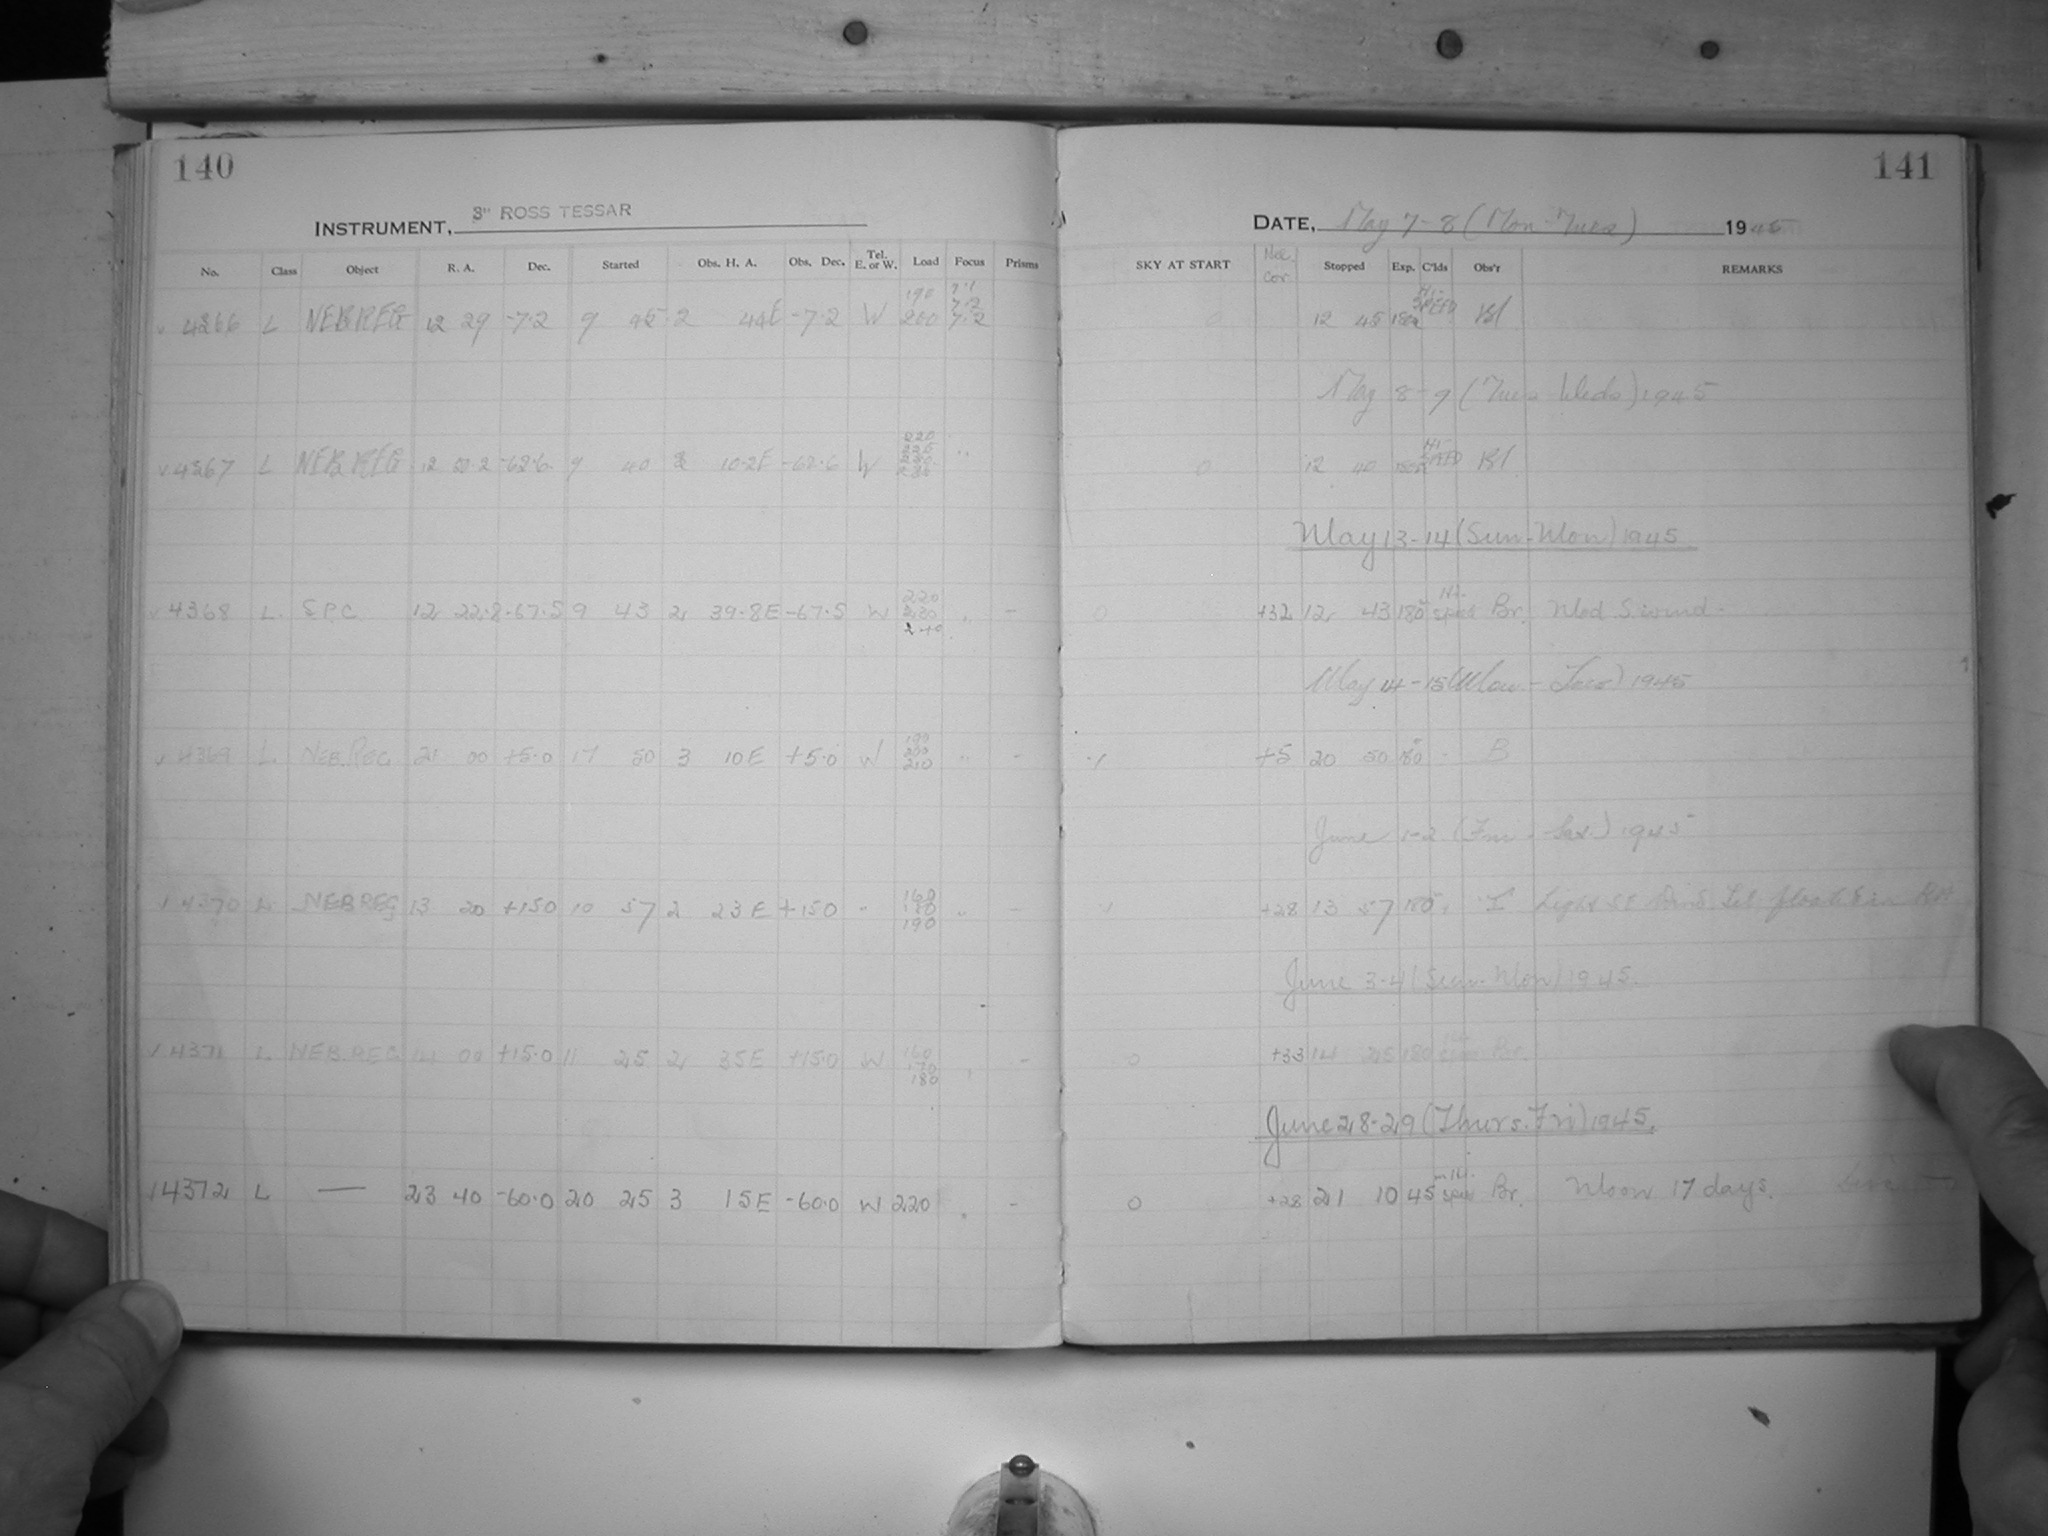 140
INSTRUMENT, 3" ROSS TESSAR
No. Class Object R. A. Dec. Started Obs. H. A. Obs. Dec. Tel. E. or W. Load Focus Prisms
4266 L NEB REG 12 29 -7.2 9 45 2 44E -7.2 W 190 200 7.1 7.2 7.2
4267 L NEB REG 12 52.2 -62.6 9 40 2 10.2E -62.6 W 220 "
4368 L. S.P.C. 12 22.8 -67.5 9 43 2 39.8E -67.5 W 220 230 240 " -
4369 L NEB. REG. 21 00 +5.0 17 50 3 10E +5.0 W 190 200 210 " -
4370 L NEB REG 13 20 +15.0 10 57 2 23E +15.0 " 160 180 190 " -
4371 L NEB. REG 14 00 +15.0 11 25 2 35E +15.0 W 160 170 180 " -
4372 L — 23 40 -60.0 20 25 3 15E -60.0 W 220 " -
141
DATE, May 7-8 (Mon-Tues) 1945
SKY AT START Stopped Exp. C'lds Obs'r REMARKS
0 12 45 180 HI-SPEED Bl
May 8-9 (Tues Weds) 1945
0 12 40 180 HI-SPEED Bl
May 13-14 (Sun-Mon) 1945
0 +32 12 43 180 Hi-Speed Br. Mod. S wind.
May 14-15 (Mon-Tues) 1945
+5 20 50 180 B
June 1-2 (Fri-Sat.) 1945
+28 13 57 180 Light SE Wind
June 3-4 (Sun-Mon) 1945.
0 +33 14 25 180 Br.
June 28-29 (Thurs. Fri) 1945.
0 +28 21 10 45 Br. Moon 17 days.